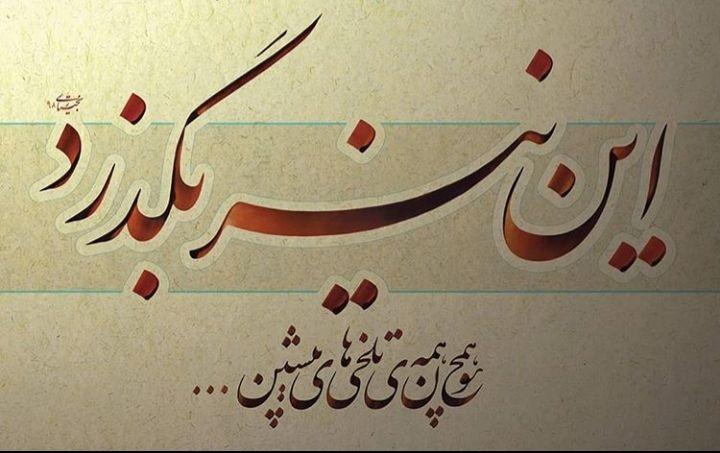 این نیز بگذرد
همچون همه ی تلخی های پیشین ...